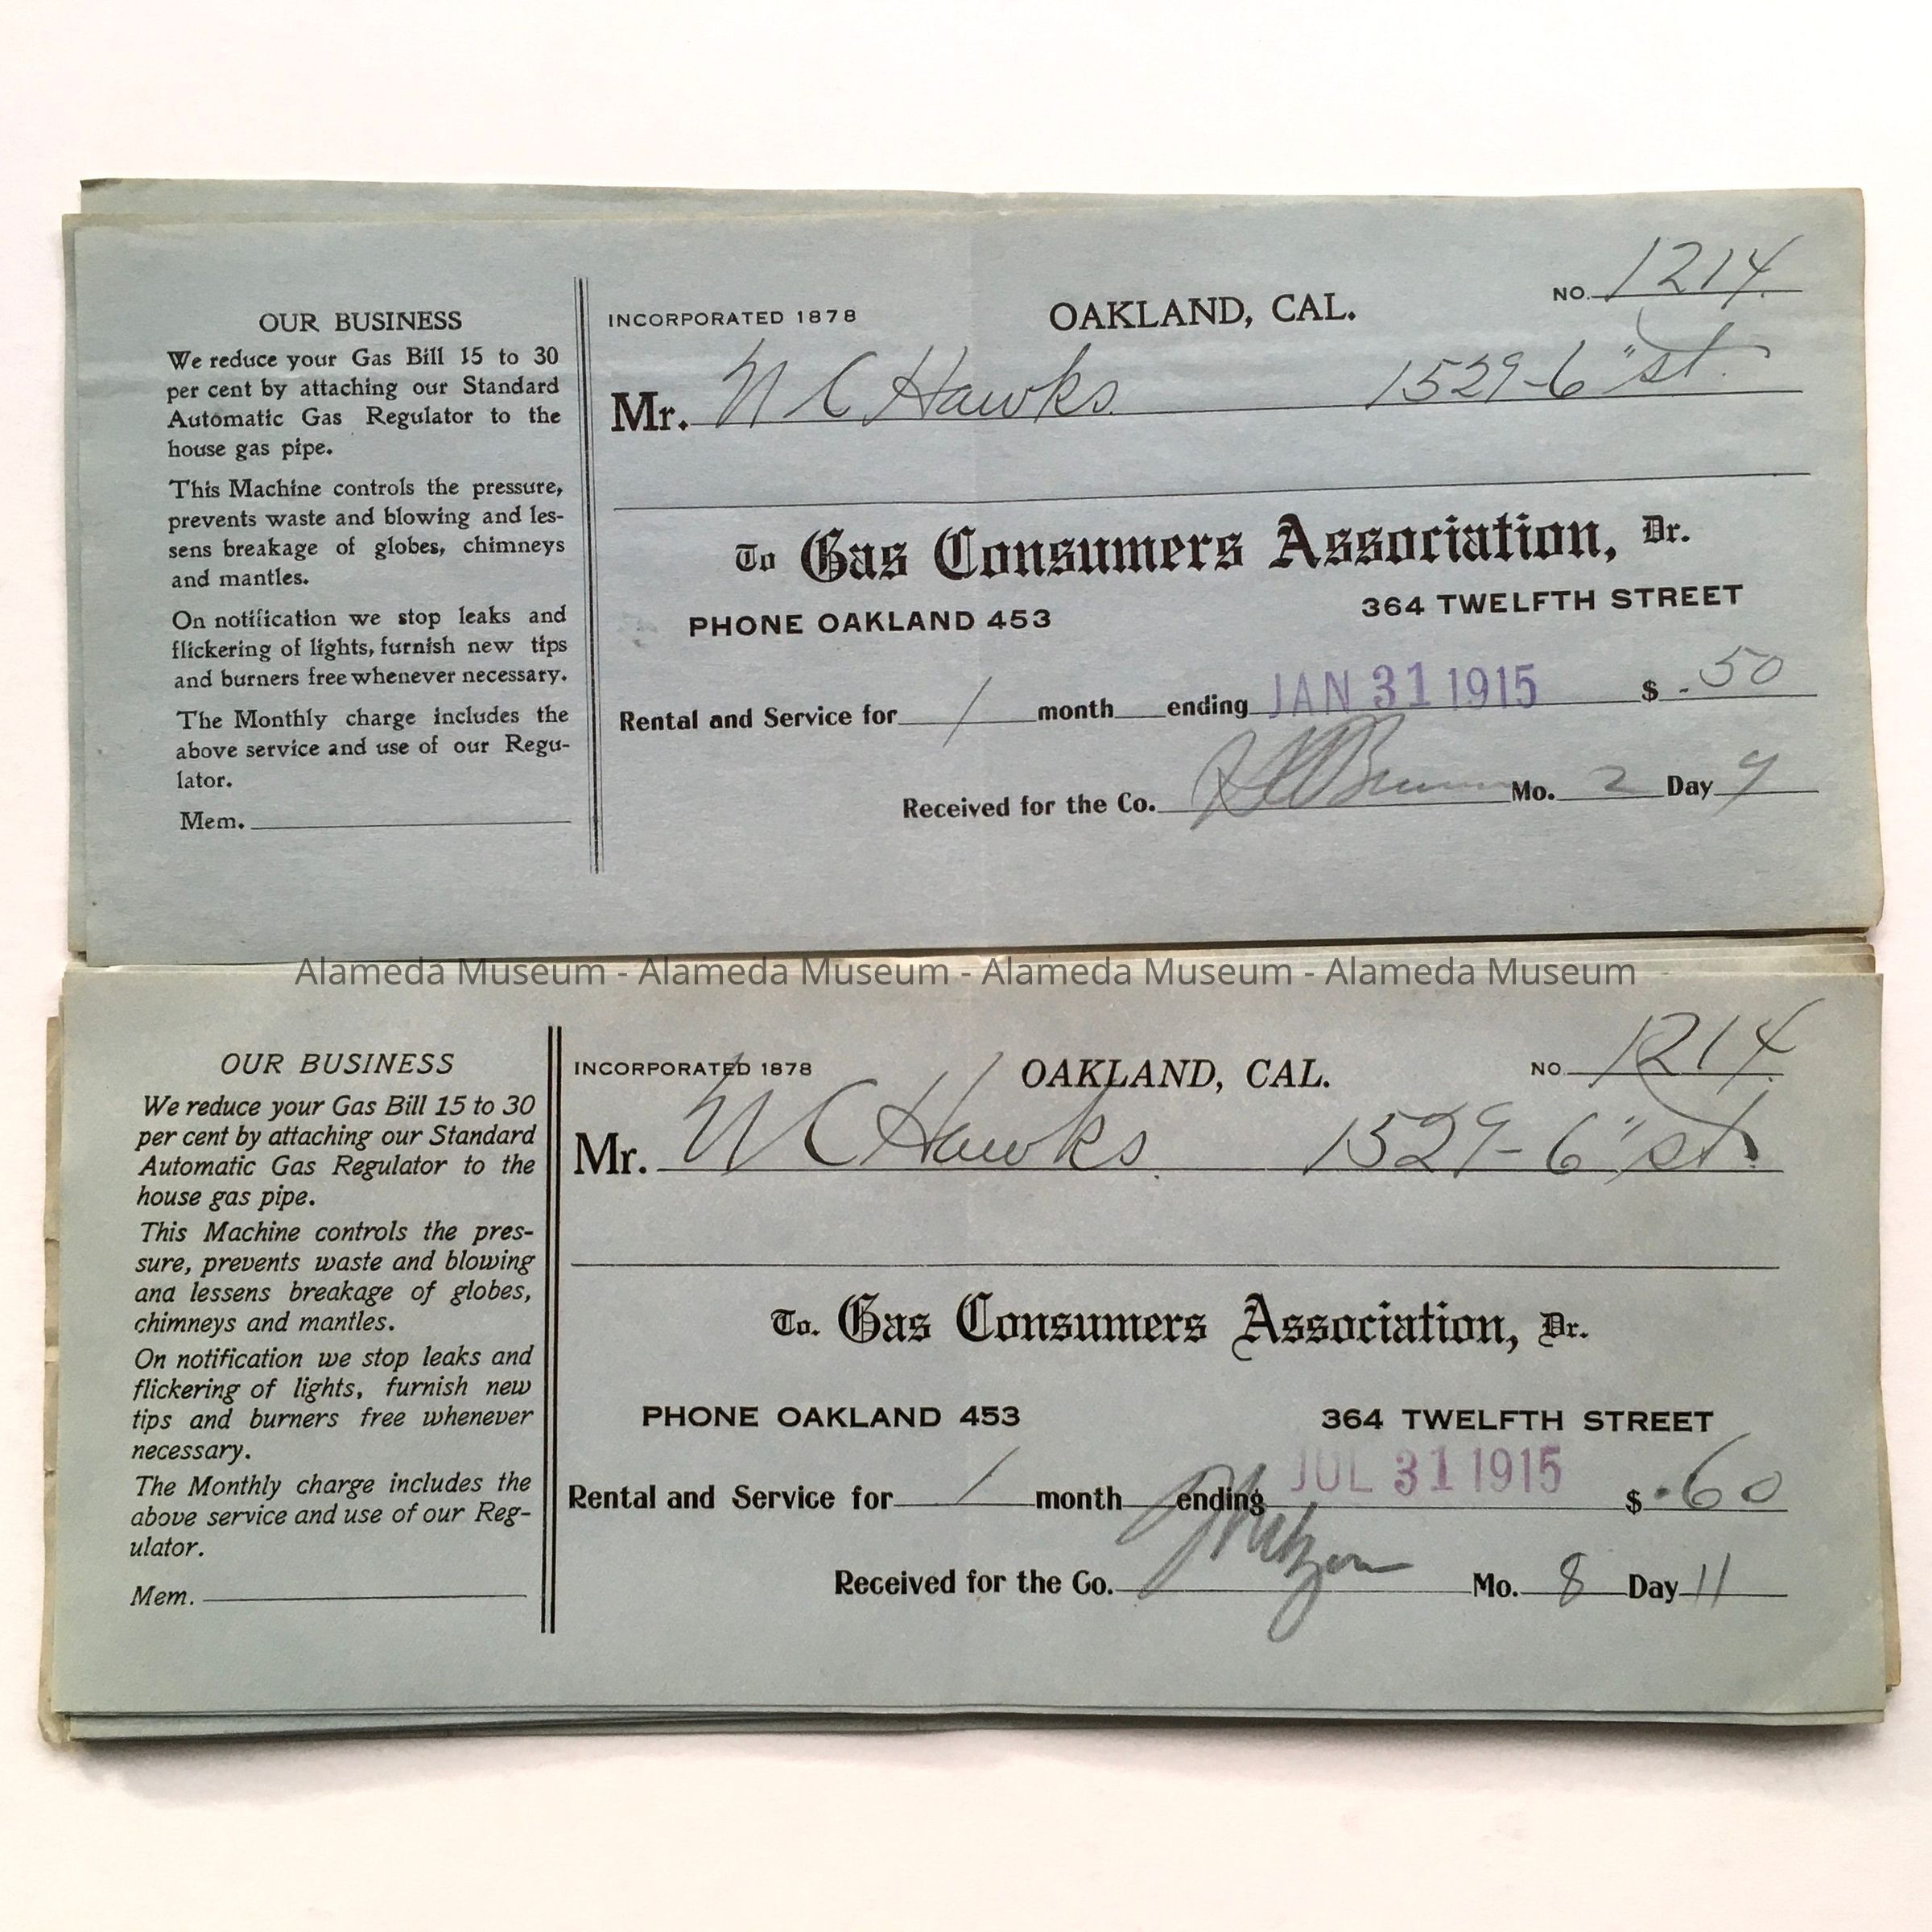 OUR BUSINESS
We reduce your Gas Bill 15 to 30
per cent by attaching our Standard
Automatic Gas Regulator to the
house gas pipe.
This Machine controls the pressure,
prevents waste and blowing and les-
sens breakage of globes, chimneys
and mantles.
On notification we stop leaks and
flickering of lights, furnish new tips
and burners free whenever necessary.
The Monthly charge includes the
above service and use of our Regu-
lator.
Mem.
INCORPORATED 1878 OAKLAND, CAL. NO. 1214
Mr. N C Hawks 1529-6" st.
To Gas Consumers Association, Dr.
PHONE OAKLAND 453 364 TWELFTH STREET
Rental and Service for 1 month ending JAN 31 1915 $ .50
Received for the Co. Mo. 2 Day 9
Alameda Museum - Alameda Museum - Alameda Museum - Alameda Museum
OUR BUSINESS
We reduce your Gas Bill 15 to 30
per cent by attaching our Standard
Automatic Gas Regulator to the
house gas pipe.
This Machine controls the pres-
sure, prevents waste and blowing
and lessens breakage of globes,
chimneys and mantles.
On notification we stop leaks and
flickering of lights, furnish new
tips and burners free whenever
necessary.
The Monthly charge includes the
above service and use of our Reg-
ulator.
Mem.
INCORPORATED 1878 OAKLAND, CAL. NO. 1214
Mr. N C Hawks 1529-6" st.
To. Gas Consumers Association, Dr.
PHONE OAKLAND 453 364 TWELFTH STREET
Rental and Service for 1 month ending JUL 31 1915 $ .60
Received for the Co. Mo. 8 Day 11